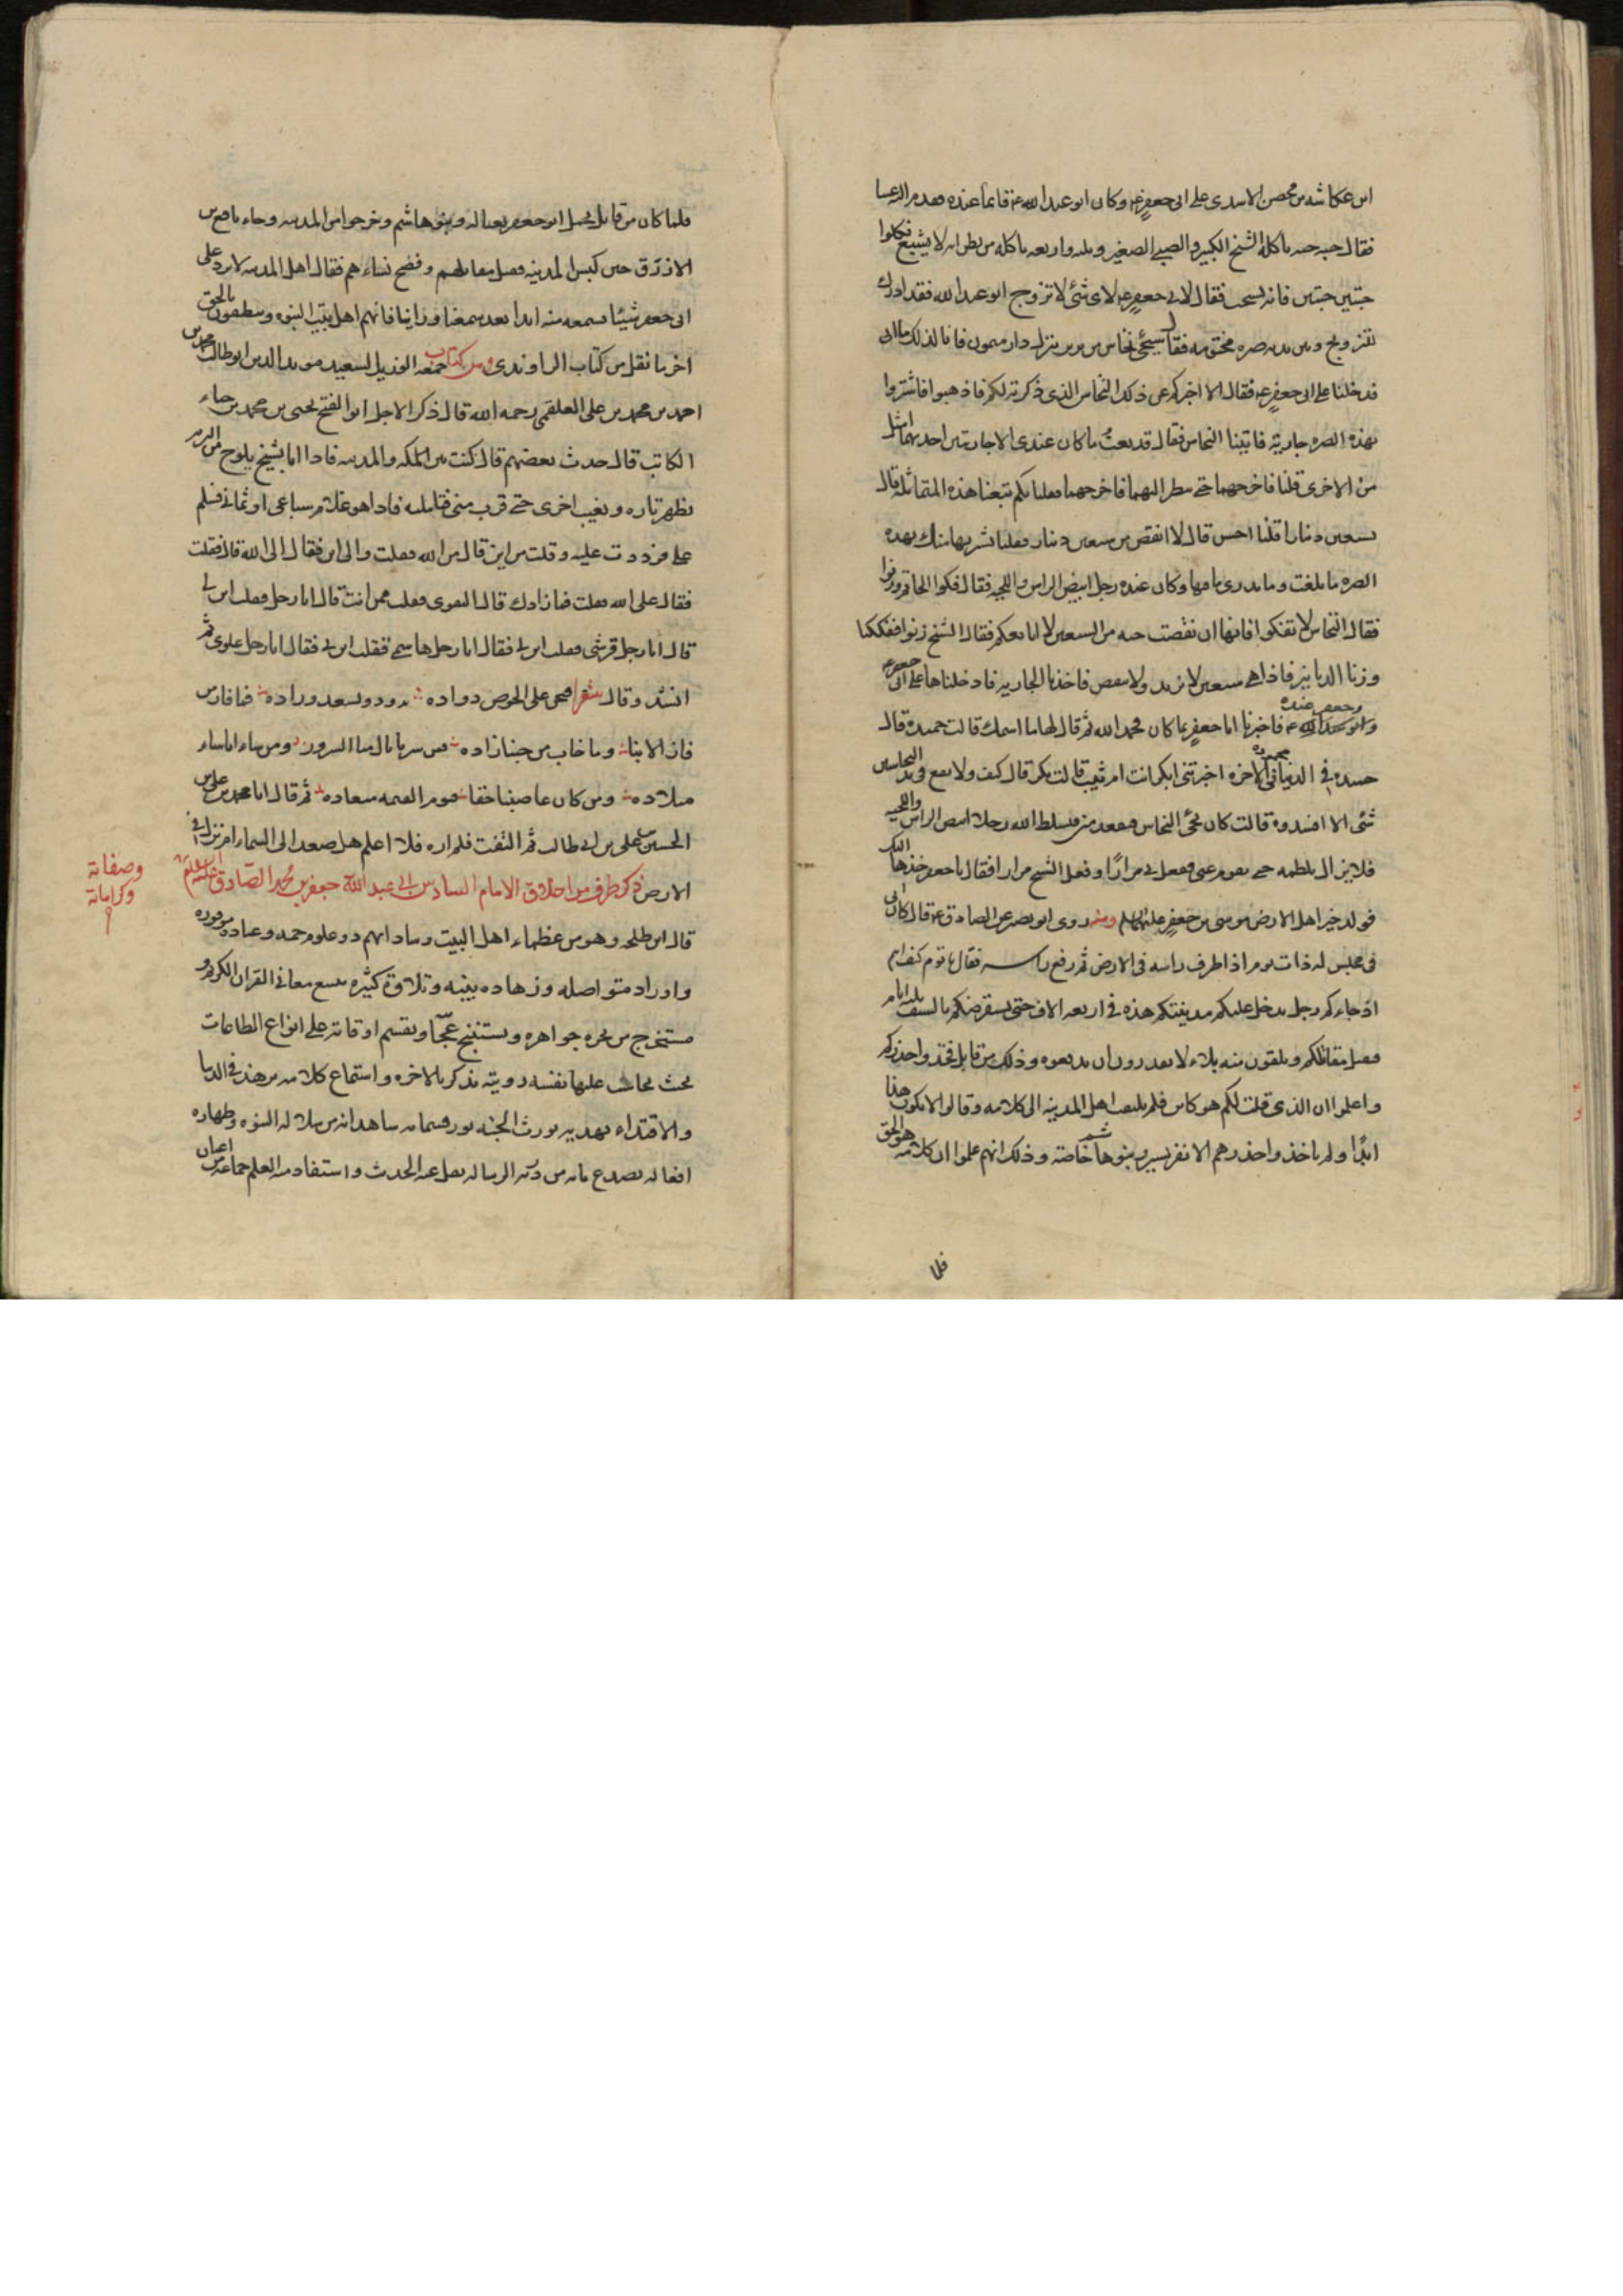 ابن عكاشه بن محصن الاسدى على ابى جعفرٍ ع وكان ابو عبد الله ع قائما عنده فقدم اليه عنبا
فقال حبه حبه ياكله الشيخ الكبير والصبى الصغير وثلثه واربعه ياكله من يظن انه لا يشبع فكلوا
حبتين حبتين فانه يستحب فقال لابى جعفرٍ ع لاى شئ لا تزوج ابو عبد الله فقد ادرك
للتزويج وبين يديه صره مختومه فقال سيجئ نخاس من بربر ينزل دار ميمون فاتا لذلك ما اتى
فدخلنا على ابى جعفرٍ ع فقال الا اخبركم عن ذلك النخاس الذى ذكرته لكم فاذهبوا فاشتروا
بهذه الصره جارية فاتينا النخاس فقال قد بعت ما كان عندى الا جاريتين احديهما امثل
من الاخرى قلنا فاخرجهما حتى ننظر اليهما فاخرجهما فقلنا بكم تبعنا هذه المتماثلة قال
بسبعين دينارا قلنا احسن قال لا انقص من سبعين دينار فقلنا نشريها منك بهذه
الصره ما بلغت وما ندرى ما فيها وكان عنده رجل ابيض الراس واللحيه فقال فكوا الخاتم وزنوا
فقال النخاس لا تفكوا فانها ان نقصت حبه من السبعين لا ابايعكم فقال الشيخ زنوا ففككنا
وزنا الدنانير فاذا هى سبعين لا تزيد ولا تنقص فاخذنا الجاريه فادخلناها على ابى جعفر ع
وجعفر عنده
فاخبرنا ابا جعفرٍ بما كان فحمد الله ثم قال لها ما اسمك قالت حميدة قال
حميده فى الدنيا محموده فى الاخره اخبرتنى ابكر انت ام ثيب قالت بكر قال كيف ولا يقع فى يد النخاسين
شئ الا افسدوه قالت كان يجئ النخاس فيقعد منى فيسلط الله رجلا ابيض الراس واللحيه
فلا يزال يلطمه حتى يقوم عنى ففعل بى مرارًا وفعل الشيخ مرارا فقال يا جعفر خذها اليك
فولد خير اهل الارض موسى بن جعفرٍ عليهما السلم ومنه روى ابو بصير عن الصادق ع قال كان ابى
فى مجلس له ذات يوم اذ اطرف راسه فى الارض ثم رفع راسه فقال يا قوم كيف انتم
اذ جاءكم رجل يدخل عليكم مدينتكم هذه فى اربعه الاف حتى يستعرضكم بالسيف ثلثه ايام
فيقتل مقاتلكم وتلقون منه بلاء لا تقدرون ان تدفعوه وذلك من قابل فخذوا حذركم
واعلموا ان الذى قلت لكم هو كاين فلم يلتفت اهل المدينه الى كلامه وقالوا لا يكون هذا
ابدًا ولم ياخذوا حذرهم الا نفر يسير وبنو هاشم خاصة وذلك انهم علموا ان كلامه هو الحق
فلما
فلما كان من قابل تحمل ابو جعفر بعياله وبنو هاشم وخرجوا من المدينه وجاء نافع بن
الازرق حين كبس المدينه فقتل مقاتلهم وفضح نساءهم فقال اهل المدينه لا نرد على
ابى جعفر شيئا نسمعه منه ابدا بعد سمعنا وراينا فانهم اهل بيت النبوه وينطقون بالحق
اخر ما نقل من كتاب الراوندى ومن كتاب جمعه الوزير السعيد مويد الدين ابو طالب محمد بن
احمد بن محمد بن على العلقمى رحمه الله قال ذكر الاجل ابو الفتح يحيى بن محمد بن حياء
الكاتب قال حدث بعضهم قال كنت بين المكه والمدينه فاذا انا بشيخ يلوح من البريه
يظهر تاره ويغيب اخرى حتى قرب منى فتاملته فاذا هو غلام سباعى او ثمانى فسلم
على فرددت عليه وقلت من اين قال من الله فقلت والى اين فقال الى الله قال فقلت
فقال على الله فقلت فما زادك قال التقوى فقلت ممن انت قال انا رجل فقلت ابن لى
قال انا رجل قرشى فقلت ابن لى فقال انا رجل هاشمى فقلت ابن لى فقال انا رجل علوى ثم
انشد وقال شعرا فنحن على الحوض دواده نذود ويسعد وراده فما فاز من
فاز الا بنا وما خاب من حبنا زاده فمن سرنا نال منا السرور ومن ساءنا ساء
ميلاده ومن كان غاصبنا حقنا فيوم القيمه ميعاده ثم قال انا محمد بن على بن
الحسين بن على بن ابى طالب ثم التفت فلم اره فلا اعلم هل صعد الى السماء ام نزل فى
الارض ذكر طرف من اخلاق الامام السادس ابى عبد الله جعفر بن محمد الصادق عليه السلم
وصفاته
وكراماته
قال ابن طلحه وهو من عظماء اهل البيت وساداتهم ذو علوم جمه وعباده موفوره
واوراد متواصله وزهاده بينه وتلاوة كثيره يتتبع معانى القران الكريم و
يستخرج من بحره جواهره ويستنتج عجائبه ويقسم اوقاته على انواع الطاعات
بحيث يحاسب عليها نفسه رويته تذكر بالاخره واستماع كلامه يزهد فى الدنيا
والاقتداء بهديه يورث الجنه نور قسماته شاهد انه من سلاله النبوه وطهاره
افعاله تصدع بانه من ذريه الرساله نقل عنه الحديث واستفاد منه العلم جماعه من اعيان